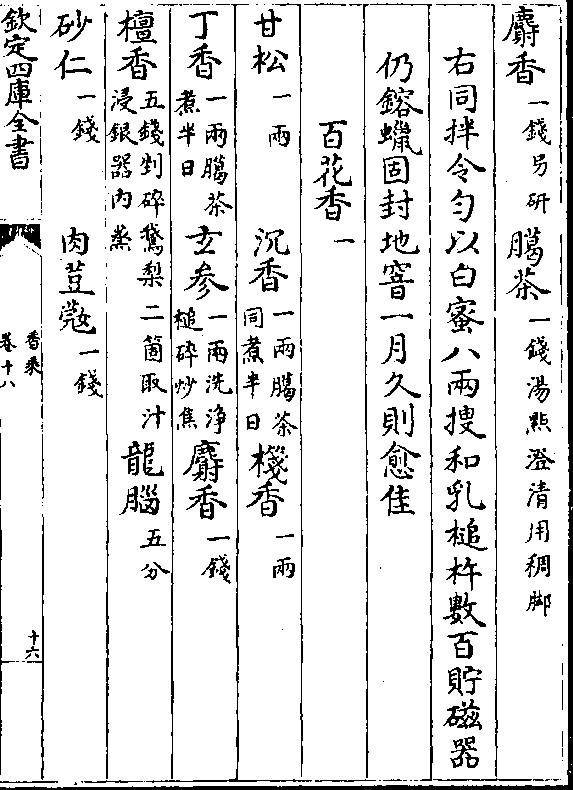 麝香一錢另研 臈茶一錢湯㸃澄清用稠脚
右同拌令勻以白蜜八兩搜和乳槌杵數百貯磁器
仍鎔蠟固封地窨一月久則愈佳
百花香一
甘松一兩 沉香一兩臈茶同煮半日 棧香一兩
丁香一兩臈茶煮半日 玄參一兩洗浄槌碎炒焦 麝香一錢
檀香五錢剉碎鵞梨二箇取汁浸銀器內蒸 龍腦五分
砂仁一錢 肉荳蔲一錢
欽定四庫全書
香乘
卷十八
十六